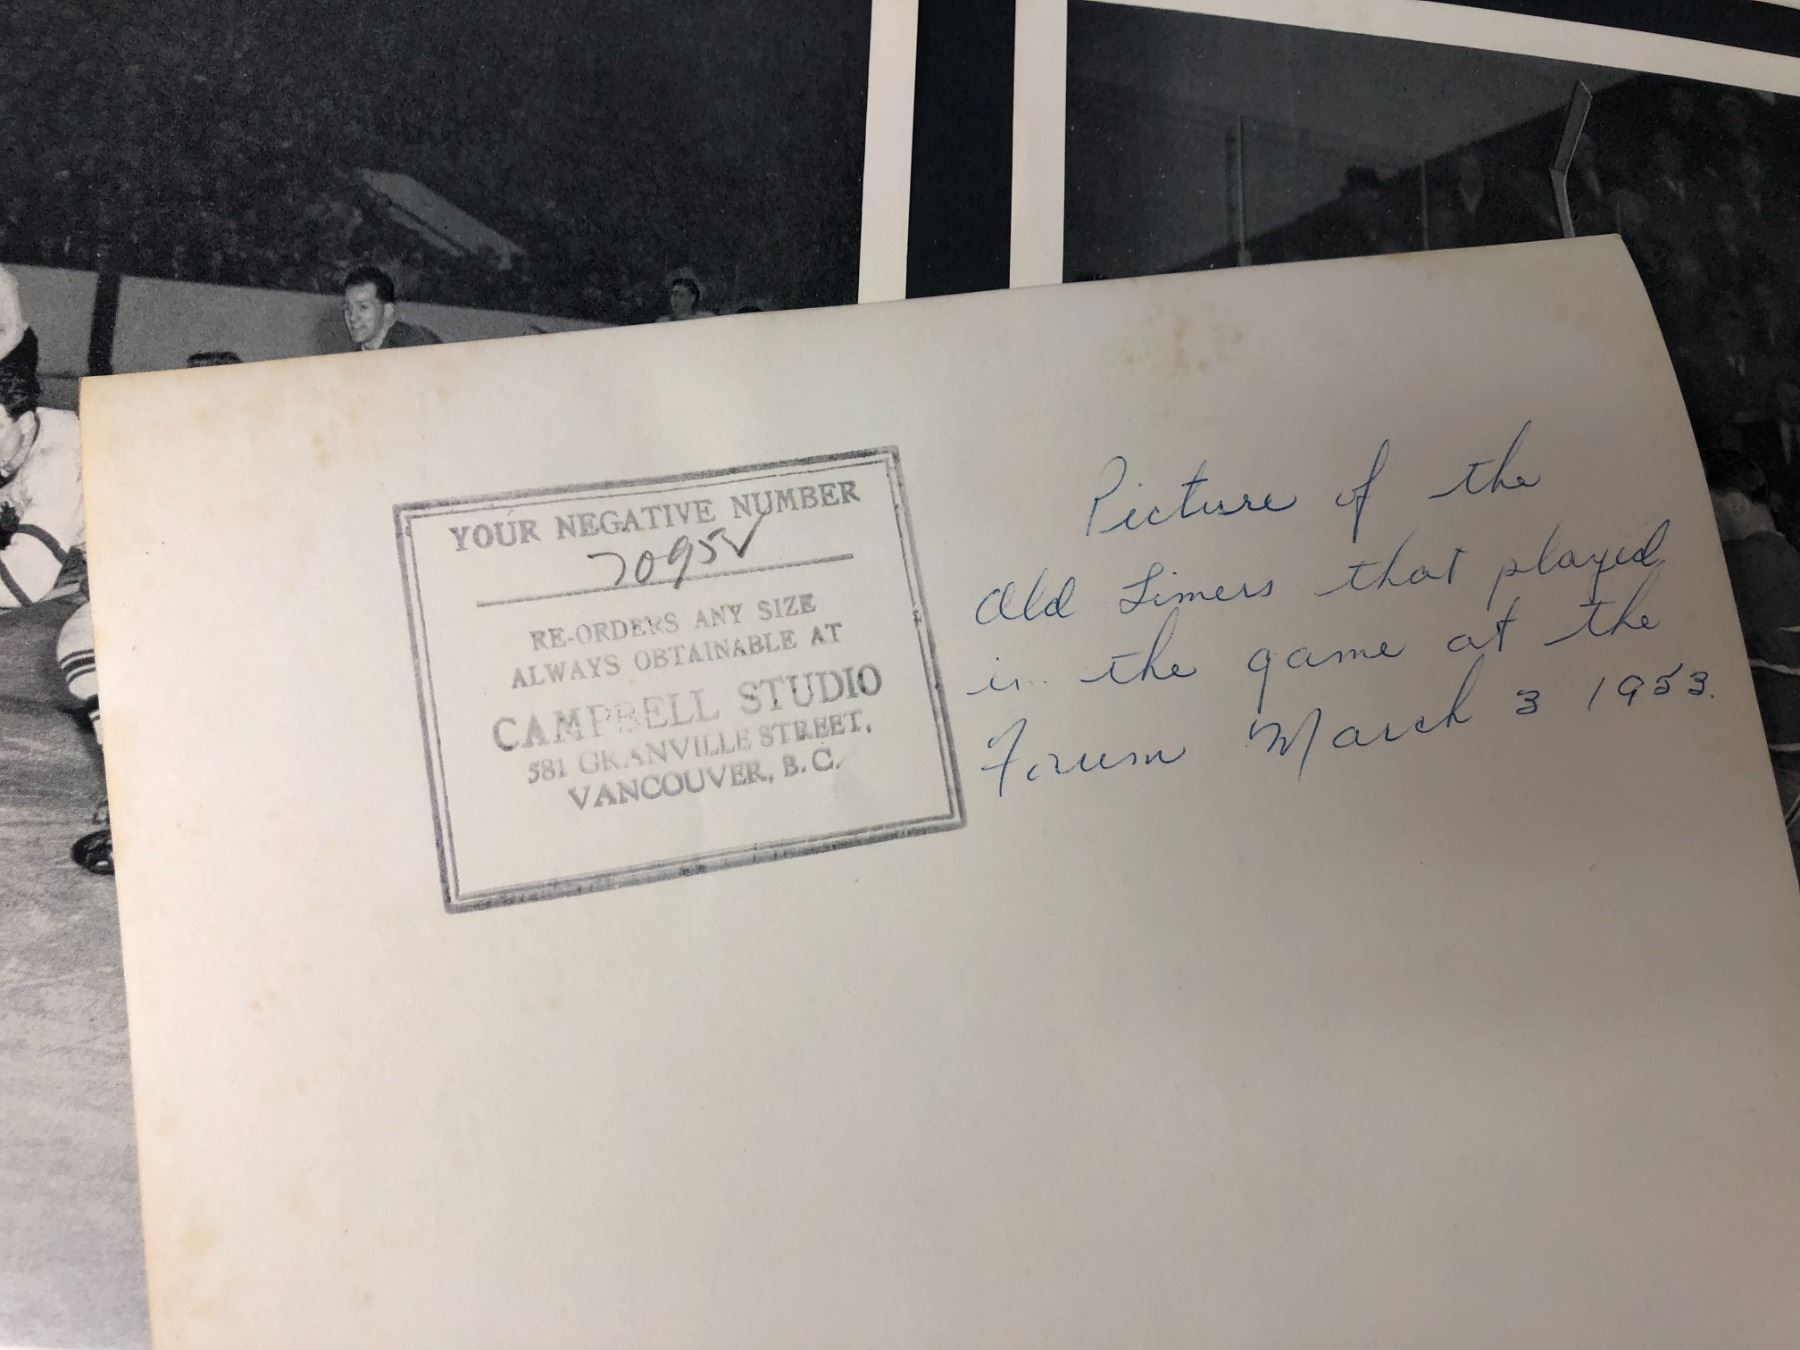 YOUR NEGATIVE NUMBER
7095
RE-ORDERS ANY SIZE
ALWAYS OBTAINABLE AT
CAMPBELL STUDIO
581 GRANVILLE STREET,
VANCOUVER, B.C.
Picture of the
Old Timers that played
in the game at the
Forum March 3 1953.